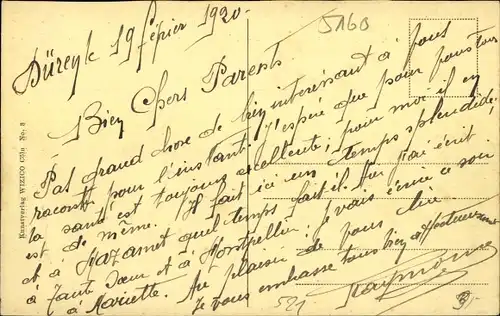 5160
Düren le 19 février 1920.
Bien Chers Parents
Pas grand chose de bien intéressant à vous
raconter pour l'instant. J'espère que pour vous tous
la santé est toujours excellente; pour moi il en
est de même. Il fait ici un temps splendide,
et à Mazamet quel temps fait il. J'ai écrit
à Tante et à Montpellier; je vais écrire ce soir
à Mariette. Au plaisir de vous lire
Je vous embrasse tous bien affectueusement
Raymond
521
Kunstverlag WIZZICO Cöln No. 8